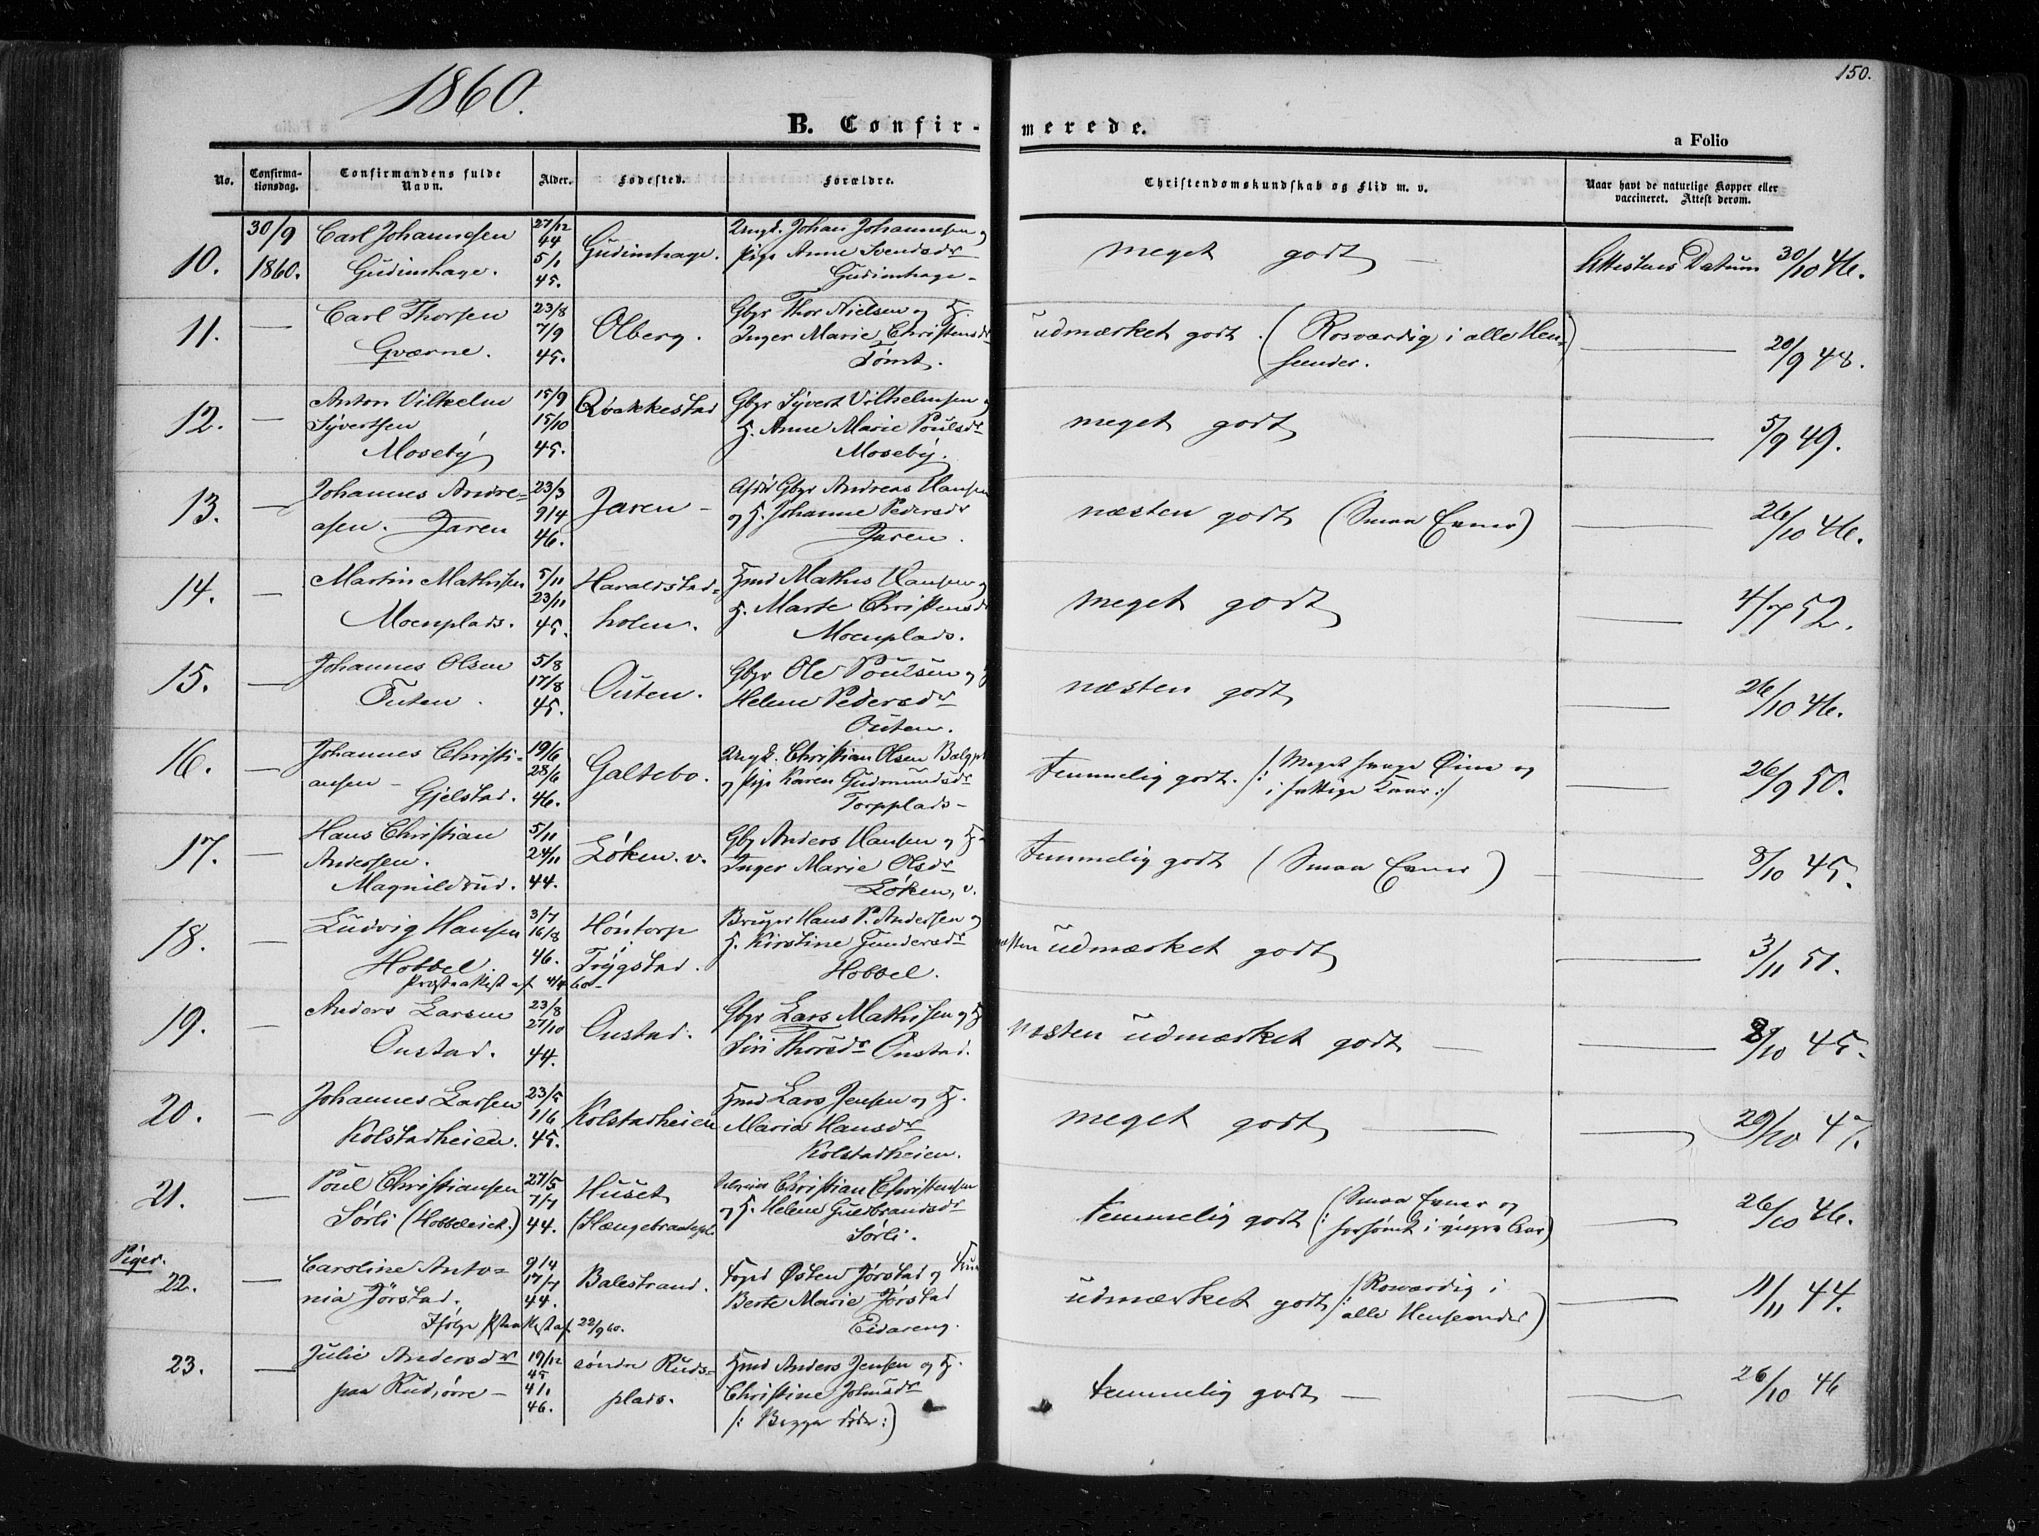 1860.
150.
B. Confir-merede.
a Folio
No.
Confirma-
tionsdag.
Confirmandens fulde
Navn.
Alder.
Fødested.
Forældre.
Christendomskundskab og Flid m. v.
Naar havt de naturlige Kopper eller
vaccineret. Attest derom.
10. 30/9 1860. Carl Johannesen Gudimhage. 27/12 44 5/1 45. Gudimhage. Ungk. Johan Johannesen og Pige Anne Svendsdr Gudimhage - meget godt — Attestens Datum 30/10 46.
11. — Carl Thorsen Gværne. 23/8 7/9 45. Olberg. Gbr Thor Nielsen og H. Inger Marie Christensdr Tømt. udmærket godt. (Rosværdig i alle Hen-seender.) — 20/9 48.
12. — Anton Vilhelm Syvertsen Moseby 15/9 15/10 45. Qvakkestad Gbr Syvert Vilhelmsen og H. Anne Marie Poulsdr Moseby. meget godt — 5/9 49.
13. — Johannes Andre=asen. Jaren 23/3 9/4 46. Jaren - Afdø Gbr Andreas Hansen og H. Johanne Pedersdr Jaren. næsten godt (Smaa Evner) — 26/10 46.
14. — Martin Mathisen Moenplads. 5/11 23/11 45. Haraldstad=holen. Hmd Mathis Hansen og H. Marte Christensdr Moenplads. meget godt — 4/7 52.
15. — Johannes Olsen Outen. 5/8 17/8 45. Outen. Gbr Ole Poulsen og H Helene Pedersdr Outen. næsten godt — 26/10 46.
16. — Johannes Christi-ansen - Gjelstad. 19/6 28/6 46. Galtebo. Ungk. Christian Olsen og Pige Karen Gudmundsdr Torpplads - temmelig godt. /: Meget svage Øine og i fattige Kaar :/ 26/9 50.
17. — Hans Christian Anderssen. Magnildrud. 5/11 24/11 44. Løken. v. Gbr Anders Hansen og H. Inger Marie Olsdr Løken, v. temmelig godt (Smaa Evner) — 8/10 45.
18. — Ludvig Hansen Hobbel. Præsteattest af 4/4 60- 3/7 16/8 46. Høntorp Trygstad. Bruger Hans P. Andersen og H. Kirstine Gundersdr Hobbel. næsten udmærket godt — 3/11 51.
19. — Anders Larsen Onstad. 23/8 27/10 44. Onstad. Gbr Lars Mathisen og H Siri Thorsdr Onstad. Næsten udmærket godt — — 8/10 45.
20. — Johannes Larsen Kolstadheien. 23/5 1/6 45. Kolstadheien Hmd Lars Jensen og H. Maria Hansdr Kolstadheien. meget godt — — 29/10 47.
21. — Poul Christiansen Sørli (Hobbeleick.) 27/5 7/7 44. Huset Christian Christensen og H. Helene Guldbrandsdr Sørli. temmelig godt (: Smaa Evner og forsømt i yngre Aar) — 26/10 46.
Piger.
22. — Caroline Anto=nia Jørstad. Ifølge Præsteattest af 22/9 60. 9/4 17/7 44. Balestrand. Fogd Østen Jørstad og Frue Berte Marie Jørstad Eidareng. udmærket godt /: Rosværdig i alle Henseender) — 11/11 44.
23. — Julie Andersdr paa Rud, øvre - 19/12 45 4/1 46. søndre Ruds=plads. Hmd Anders Jensen og H. Christine Johnsdr /: Begge døde :) temmelig godt — — 26/10 46